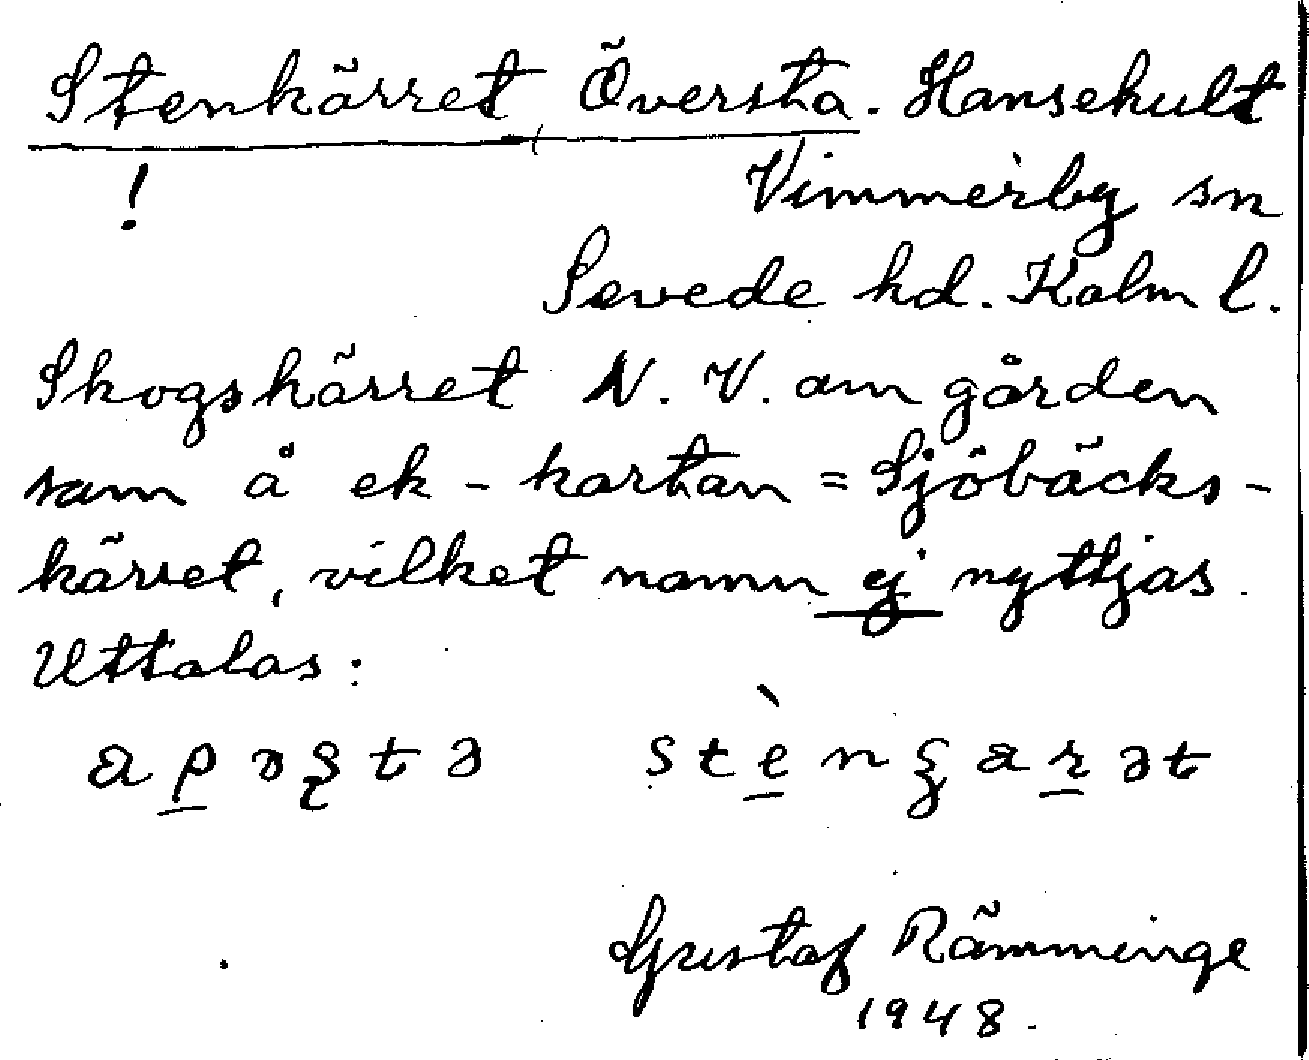 Stenkärret, Översta. Hansehult
! Vimmerby sn
Sevede hd. Kalm l.
Skogskärret N. V. om gården
som å ek-kartan = Sjöbäcks-
kärret, vilket namn ej nyttjas.
Uttalas:
Gustaf Rämminge
1948.